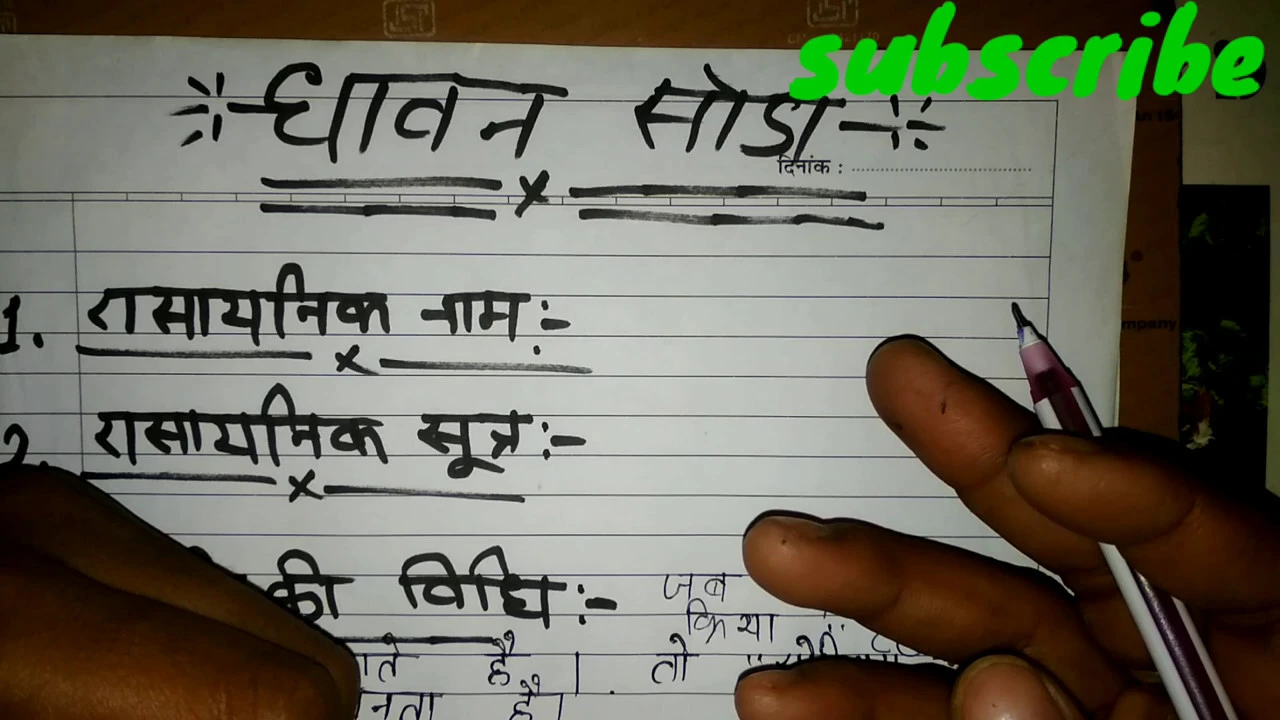 subscribe
धावन सोडा
दिनांक :
x
1. रासायनिक नाम:-
x
2. रासायनिक सूत्र:-
x
की विधि:- जब
क्रिया
है। तो
है।